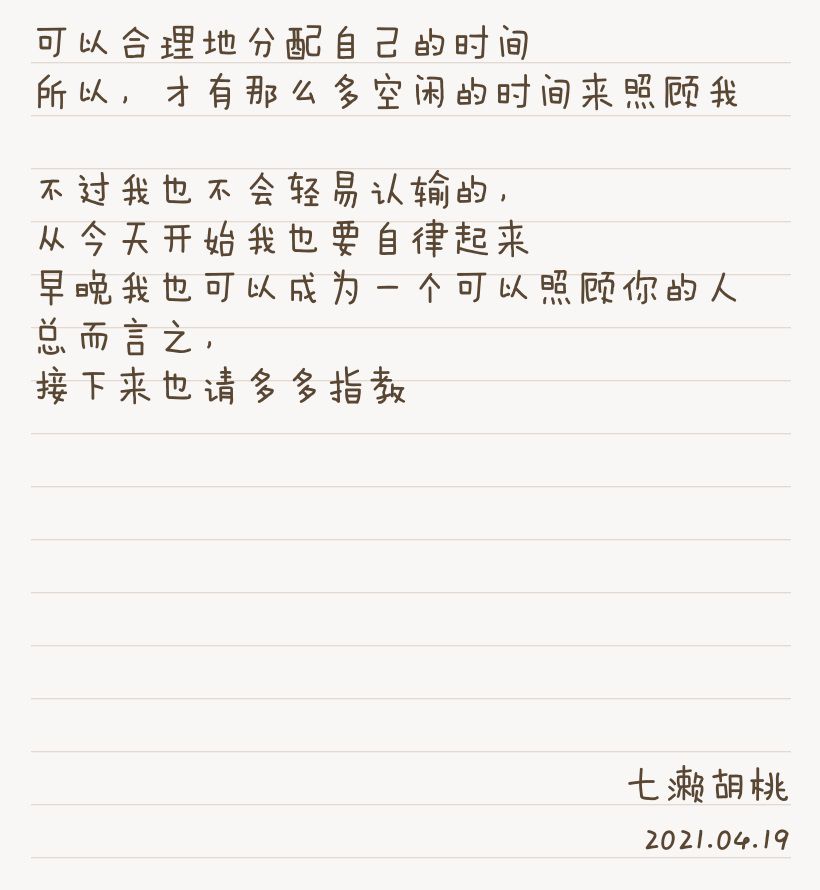 可以合理地分配自己的时间
所以，才有那么多空闲的时间来照顾我
不过我也不会轻易认输的，
从今天开始我也要自律起来
早晚我也可以成为一个可以照顾你的人
总而言之，
接下来也请多多指教
七濑胡桃
2021.04.19